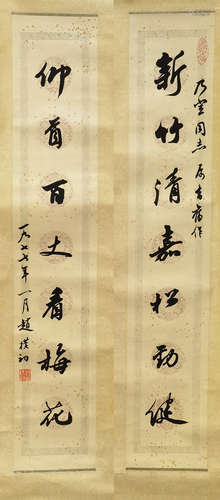 乃堂同志属书旧作
新竹清嘉松劲健
仰首百丈看梅花
一九七七年一月赵朴初